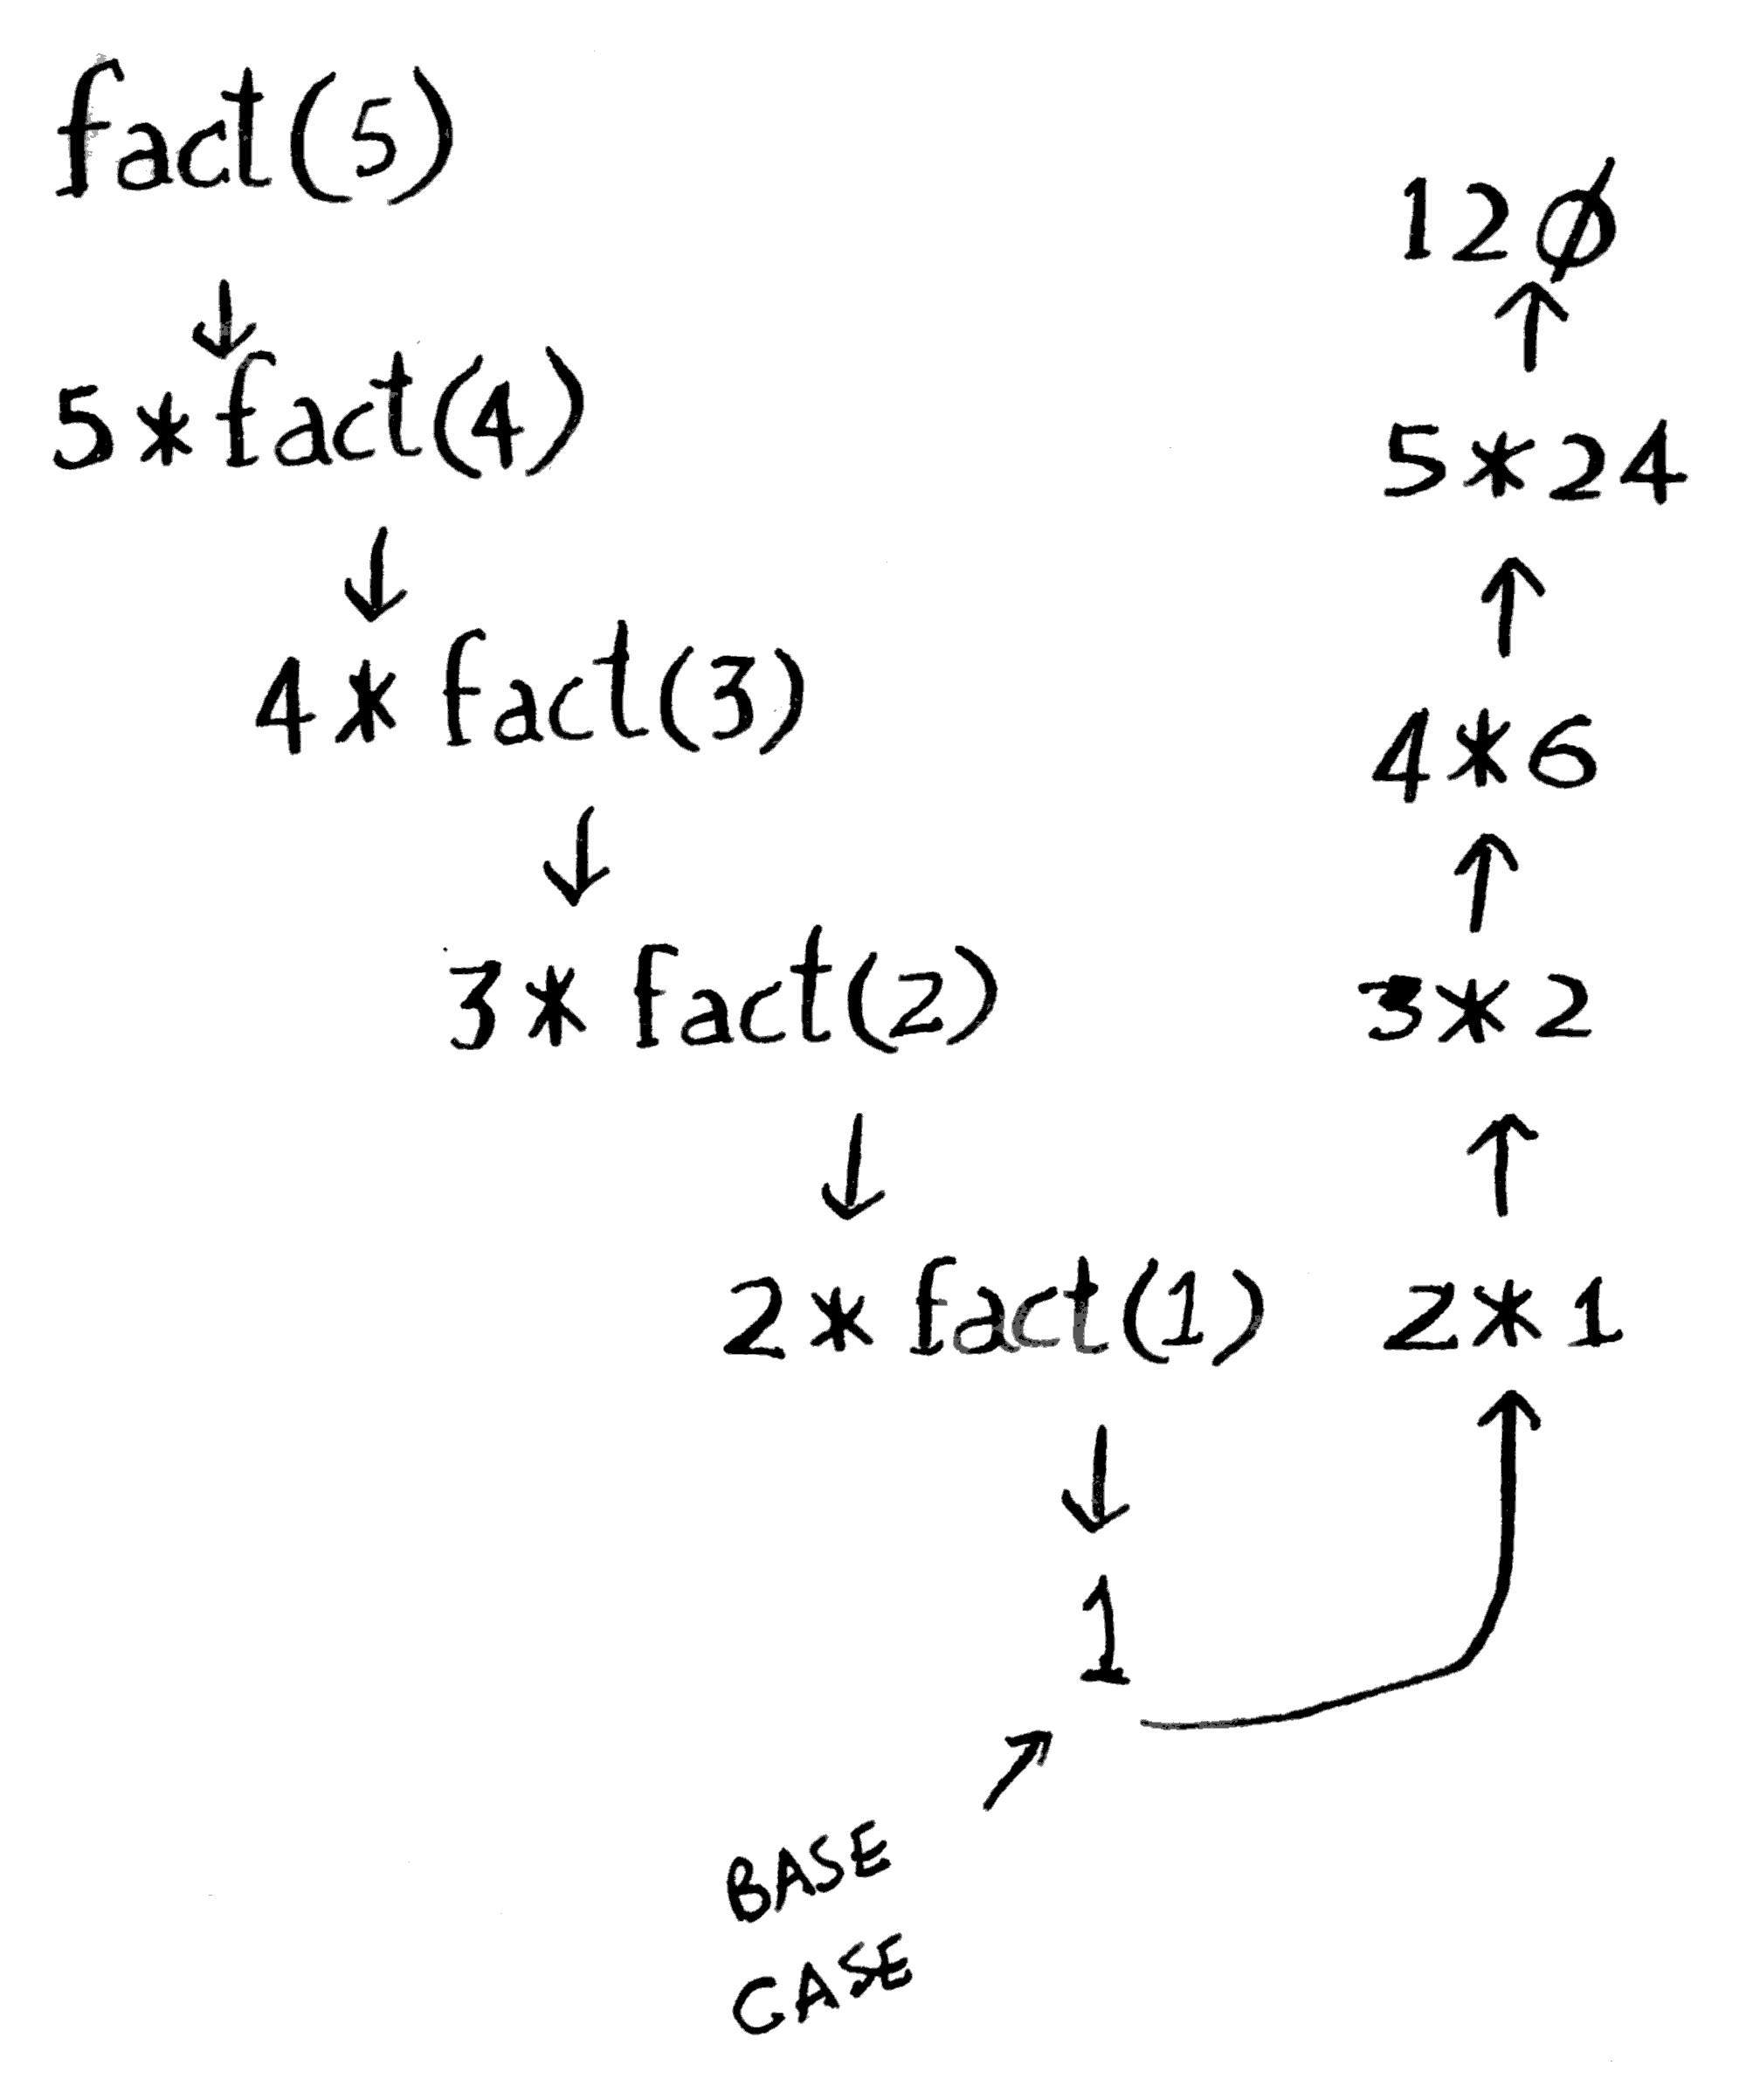 fact(5)
5*fact(4)
4* fact(3)
3* fact(2)
2* fact(1)
1
BASE
CASE
2*1
3*2
4*6
5*24
120